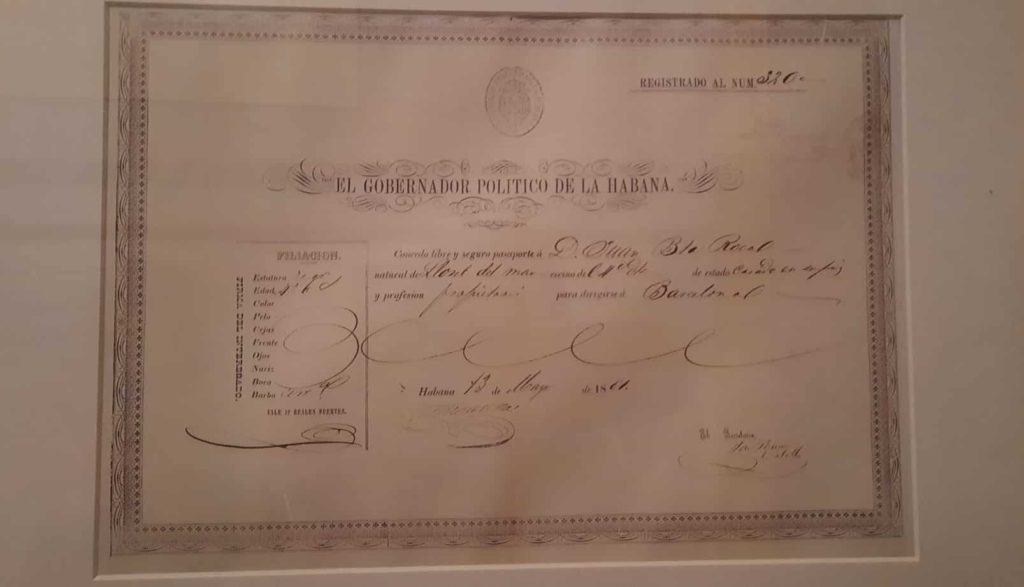 REGISTRADO AL NUM. 320
EL GOBERNADOR POLITICO DE LA HABANA.
FILIACION.
Estatura
Edad
Color
Pelo
Cejas
Frente
Ojos
Nariz
Boca
Barba
VALE 17 REALES FUERTES.
FIRMA DEL INTERESADO.
Concedo libre y seguro pasaporte á D. Juan Bta
natural de Lloret del mar vecino de de estado Casado en
y profesion propietario para dirigirse á Barcelona
Habana 13 de Mayo de 1861.